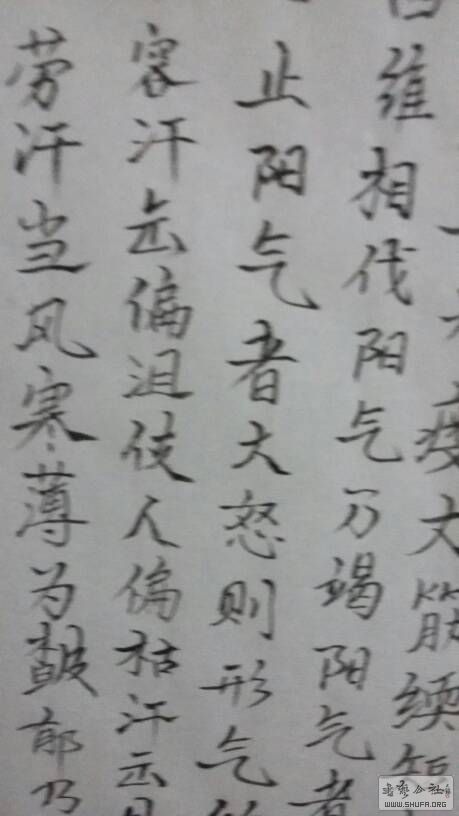 疫大筋緛短
维相伐阳气乃竭阳气者
止阳气者大怒则形气
容汗出偏沮使人偏枯汗出见
劳汗当风寒薄为皶郁乃
WWW.SHUFA.ORG